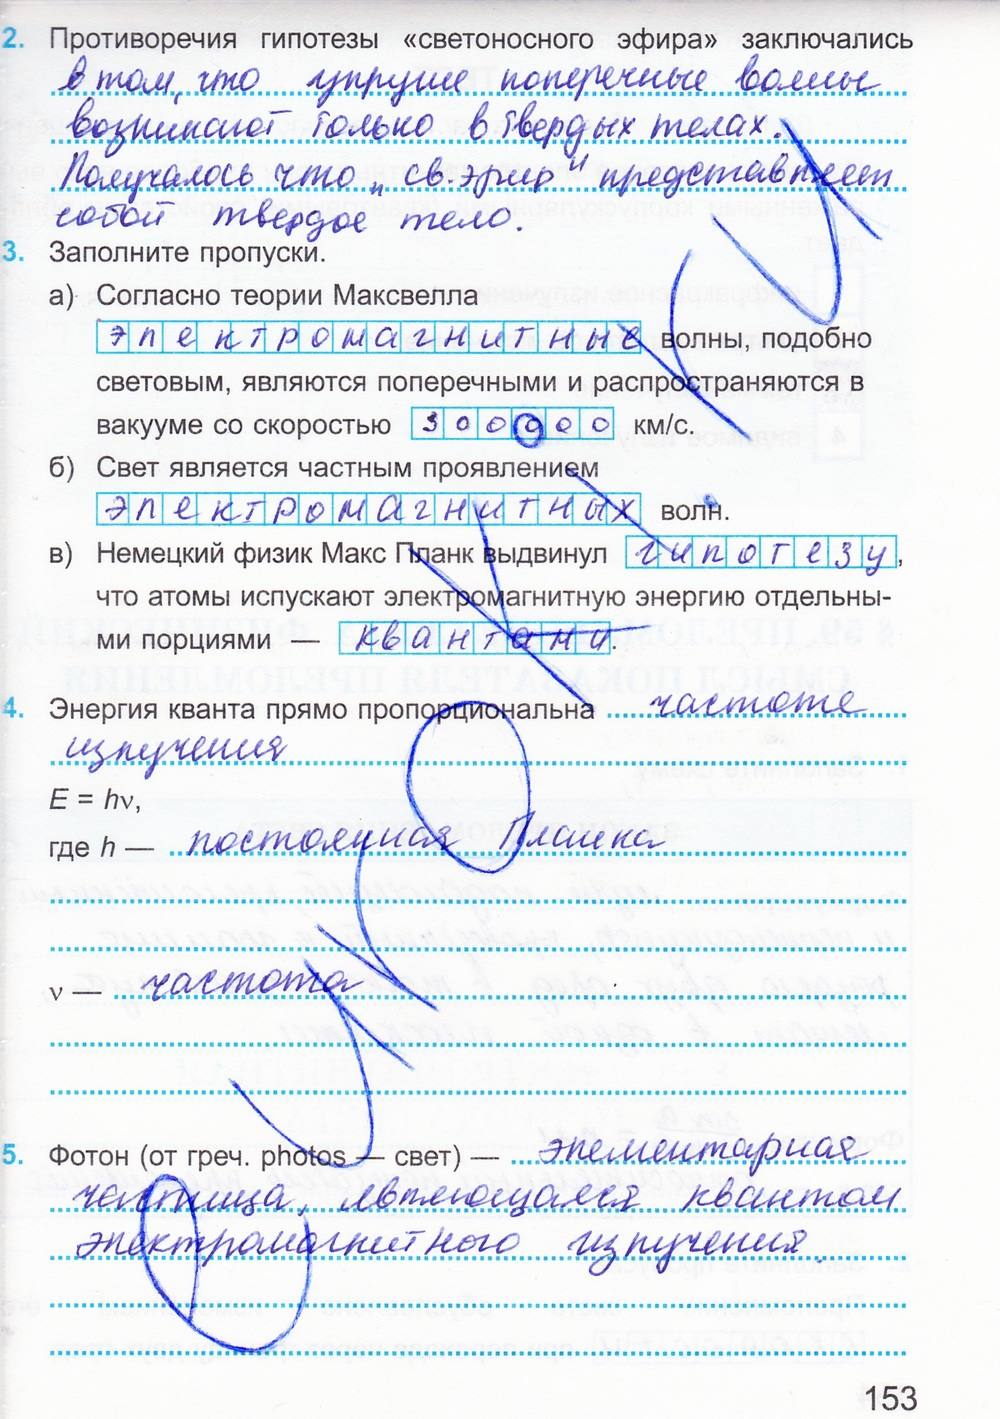 2. Противоречия гипотезы «светоносного эфира» заключались
в том, что упругие поперечные волны
возникают только в твердых телах.
Получалось что „св. эфир" представляет
собой твердое тело.
3. Заполните пропуски.
а) Согласно теории Максвелла
электромагнитные волны, подобно
световым, являются поперечными и распространяются в
вакууме со скоростью 300000 км/с.
б) Свет является частным проявлением
электромагнитных волн.
в) Немецкий физик Макс Планк выдвинул гипотезу,
что атомы испускают электромагнитную энергию отдельны-
ми порциями — квантами.
4. Энергия кванта прямо пропорциональна частоте
излучения
E = hν,
где h — постоянная Планка
ν — частота
5. Фотон (от греч. photos — свет) — элементарная
частица, являющаяся квантом
электромагнитного излучения
153